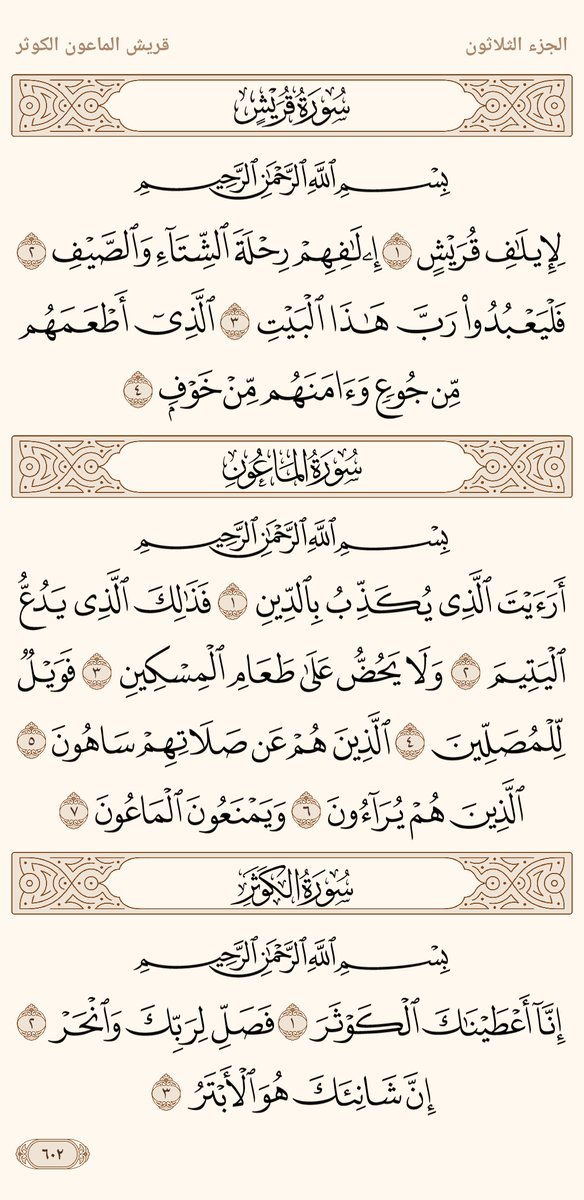 الجزء الثلاثون
قريش الماعون الكوثر
سُورَةُ قُرَيْشٍ
بِسْمِ ٱللَّهِ ٱلرَّحْمَٰنِ ٱلرَّحِيمِ
لِإِيلَٰفِ قُرَيْشٍ ١ إِۦلَٰفِهِمْ رِحْلَةَ ٱلشِّتَآءِ وَٱلصَّيْفِ ٢
فَلْيَعْبُدُوا۟ رَبَّ هَٰذَا ٱلْبَيْتِ ٣ ٱلَّذِىٓ أَطْعَمَهُم
مِّن جُوعٍ وَءَامَنَهُم مِّنْ خَوْفٍۭ ٤
سُورَةُ المَاعُونِ
بِسْمِ ٱللَّهِ ٱلرَّحْمَٰنِ ٱلرَّحِيمِ
أَرَءَيْتَ ٱلَّذِى يُكَذِّبُ بِٱلدِّينِ ١ فَذَٰلِكَ ٱلَّذِى يَدُعُّ
ٱلْيَتِيمَ ٢ وَلَا يَحُضُّ عَلَىٰ طَعَامِ ٱلْمِسْكِينِ ٣ فَوَيْلٌ
لِّلْمُصَلِّينَ ٤ ٱلَّذِينَ هُمْ عَن صَلَاتِهِمْ سَاهُونَ ٥
ٱلَّذِينَ هُمْ يُرَآءُونَ ٦ وَيَمْنَعُونَ ٱلْمَاعُونَ ٧
سُورَةُ الكَوْثَرِ
بِسْمِ ٱللَّهِ ٱلرَّحْمَٰنِ ٱلرَّحِيمِ
إِنَّآ أَعْطَيْنَٰكَ ٱلْكَوْثَرَ ١ فَصَلِّ لِرَبِّكَ وَٱنْحَرْ ٢
إِنَّ شَانِئَكَ هُوَ ٱلْأَبْتَرُ ٣
٦٠٢